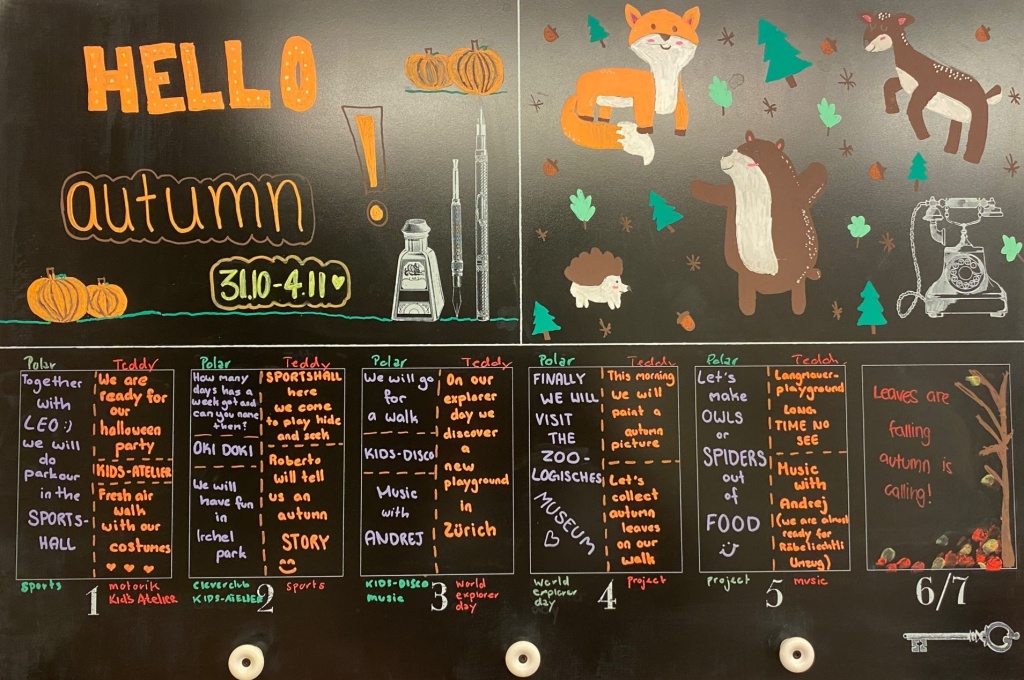 HELLO
!
autumn
31.10-4.11
Polar
Together
with
LEO :)
we will
do
parkour
in the
SPORTS-
HALL
sports
Teddy
We are
ready for
our
halloween
party
KIDS-ATELIER
Fresh air
walk
with our
costumes
motorik
Kid's Atelier
1
Polar
How many
days has a
week got and
can you name
them?
OKI DOKI
We will
have fun
in
Irchel
park
cleverclub
KIDS-ATELIER
Teddy
SPORTSHALL
here
we come
to play hide
and seek
Roberto
will tell
us an
autumn
STORY
sports
2
Polar
We will go
for
a walk
KIDS-DISCO
Music
with
ANDREJ
KIDS-DISCO
music
Teddy
On our
explorer
day we
discover
a
new
playground
in
Zürich
world
explorer
day
3
Polar
FINALLY
WE WILL
VISIT
THE
ZOO-
LOGISCHES
MUSEUM
World
explorer
day
Teddy
This morning
we will
paint a
autumn
picture
Let's
collect
autumn
leaves
on our
walk
project
4
Polar
Let's
make
OWLS
or
SPIDERS
out
of
FOOD
project
Teddy
Langmauer-
playground
LONG
TIME NO
SEE
Music
with
Andrej
(we are almost
ready for
Räbeliechtli
Umzug)
music
5
Leaves are
falling
autumn is
calling!
6/7